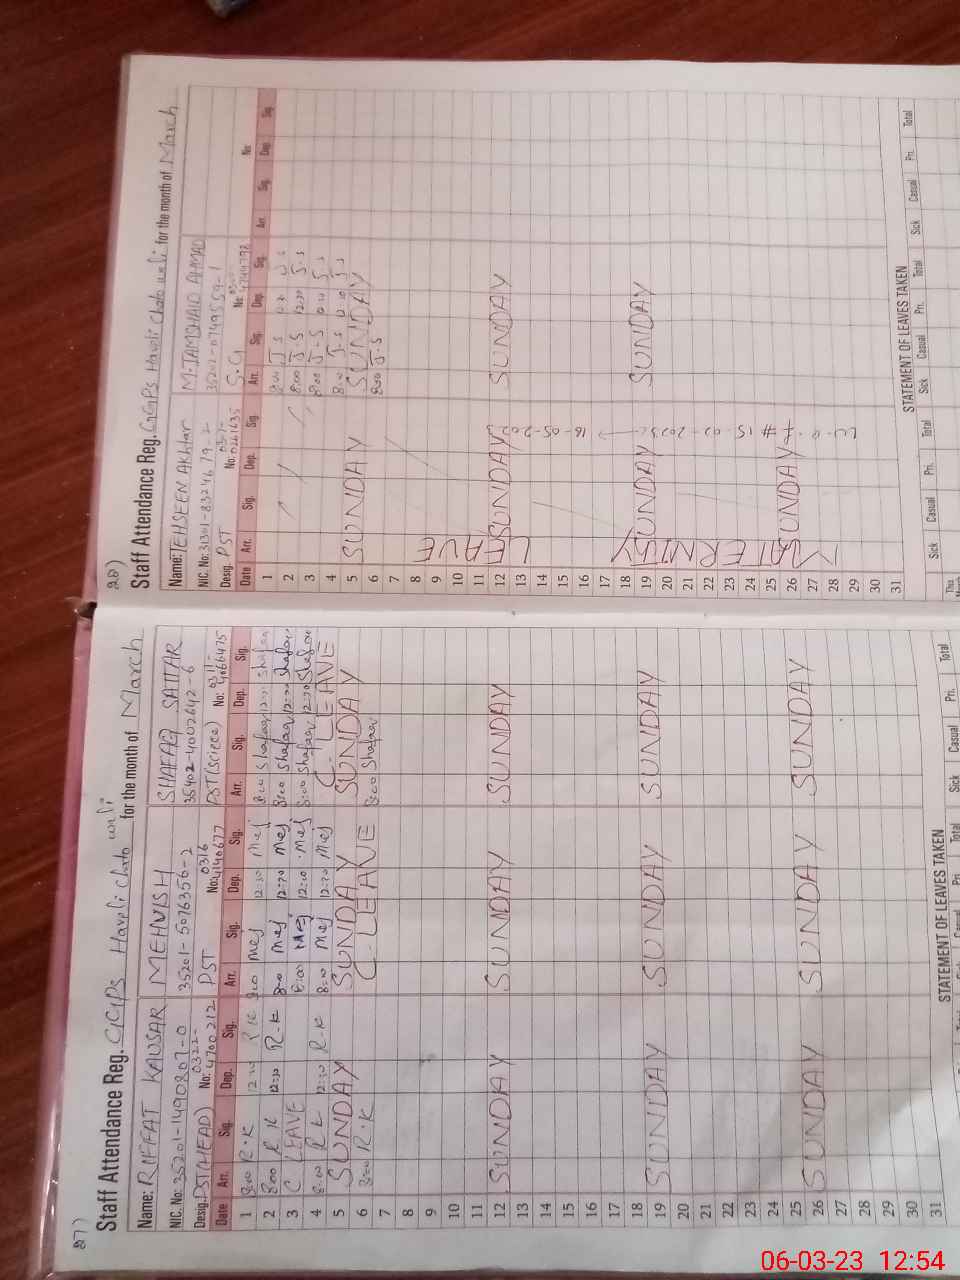 27)
Staff Attendance Reg. GGPS Haveli Chato wali for the month of March
Name: RIFFAT KAUSAR MEHVISH SHAFAQ SATTAR
NIC. No: 35201-1490207-0 35201-5076356-2 35402-4002642-6
Desig: PST(HEAD) No: 0322-4700212 PST No: 0316 4140677 PST(Sciece) No: 0311- 4066475
Date Arr. Sig. Dep. Sig. Arr. Sig. Dep. Sig. Arr. Sig. Dep. Sig.
1 8:00 R.K 12:30 R.K 8:00 Mej 12:30 Mej 8:00 Shafaq 12:30 Shafaq
2 8:00 R.K 12:30 R-K 8:00 Mej 12:30 Mej 8:00 Shafaq 12:30 Shafaq
3 C LEAVE 8:00 Mej 12:30 Mej 8:00 Shafaq 12:30 Shafaq
4 8:00 R.K 12:30 R-K 8:00 Mej 12:30 Mej C- LEAVE
5 SUNDAY SUNDAY SUNDAY
6 8:00 R.K C-LEAVE 8:00 Shafaq
7
8
9
10
11
12 SUNDAY SUNDAY SUNDAY
13
14
15
16
17
18
19 SUNDAY SUNDAY SUNDAY
20
21
22
23
24
25
26 SUNDAY SUNDAY SUNDAY
27
28
29
30
31
STATEMENT OF LEAVES TAKEN
Sick Casual Pri. Total
28)
Staff Attendance Reg. GGPS Haveli Chato wali for the month of March
Name: TEHSEEN AKhtar M.JAMSHAID AHMAD
NIC. No: 31301-8324679-2 35202-0749559-1
Desig. PST No: S.G No: No:
Date Arr. Sig. Dep. Sig. Arr. Sig. Dep. Sig. Arr. Sig. Dep. Sig.
1 8:00 J-S
2 8:00 J-S 12:30 J-S
3 8:00 J-S 12:30 J-S
4 8:00 J-S 12:30 J-S
5 SUNDAY SUNDAY
6 8:00 J-S
7
8
9
10
11
12 SUNDAY SUNDAY
13
14
15
16
17
18
19 SUNDAY SUNDAY
20
21
22
23
24
25
26 SUNDAY
27
28
29
30
31
MATERNITY LEAVE
STATEMENT OF LEAVES TAKEN
Sick Casual Pri. Total Sick Casual Pri. Total Sick Casual Pri. Total
This
06-03-23 12:54